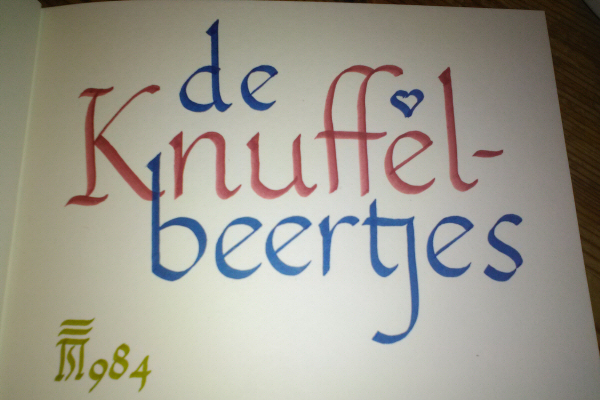 de
Knuffel-
beertjes
1984